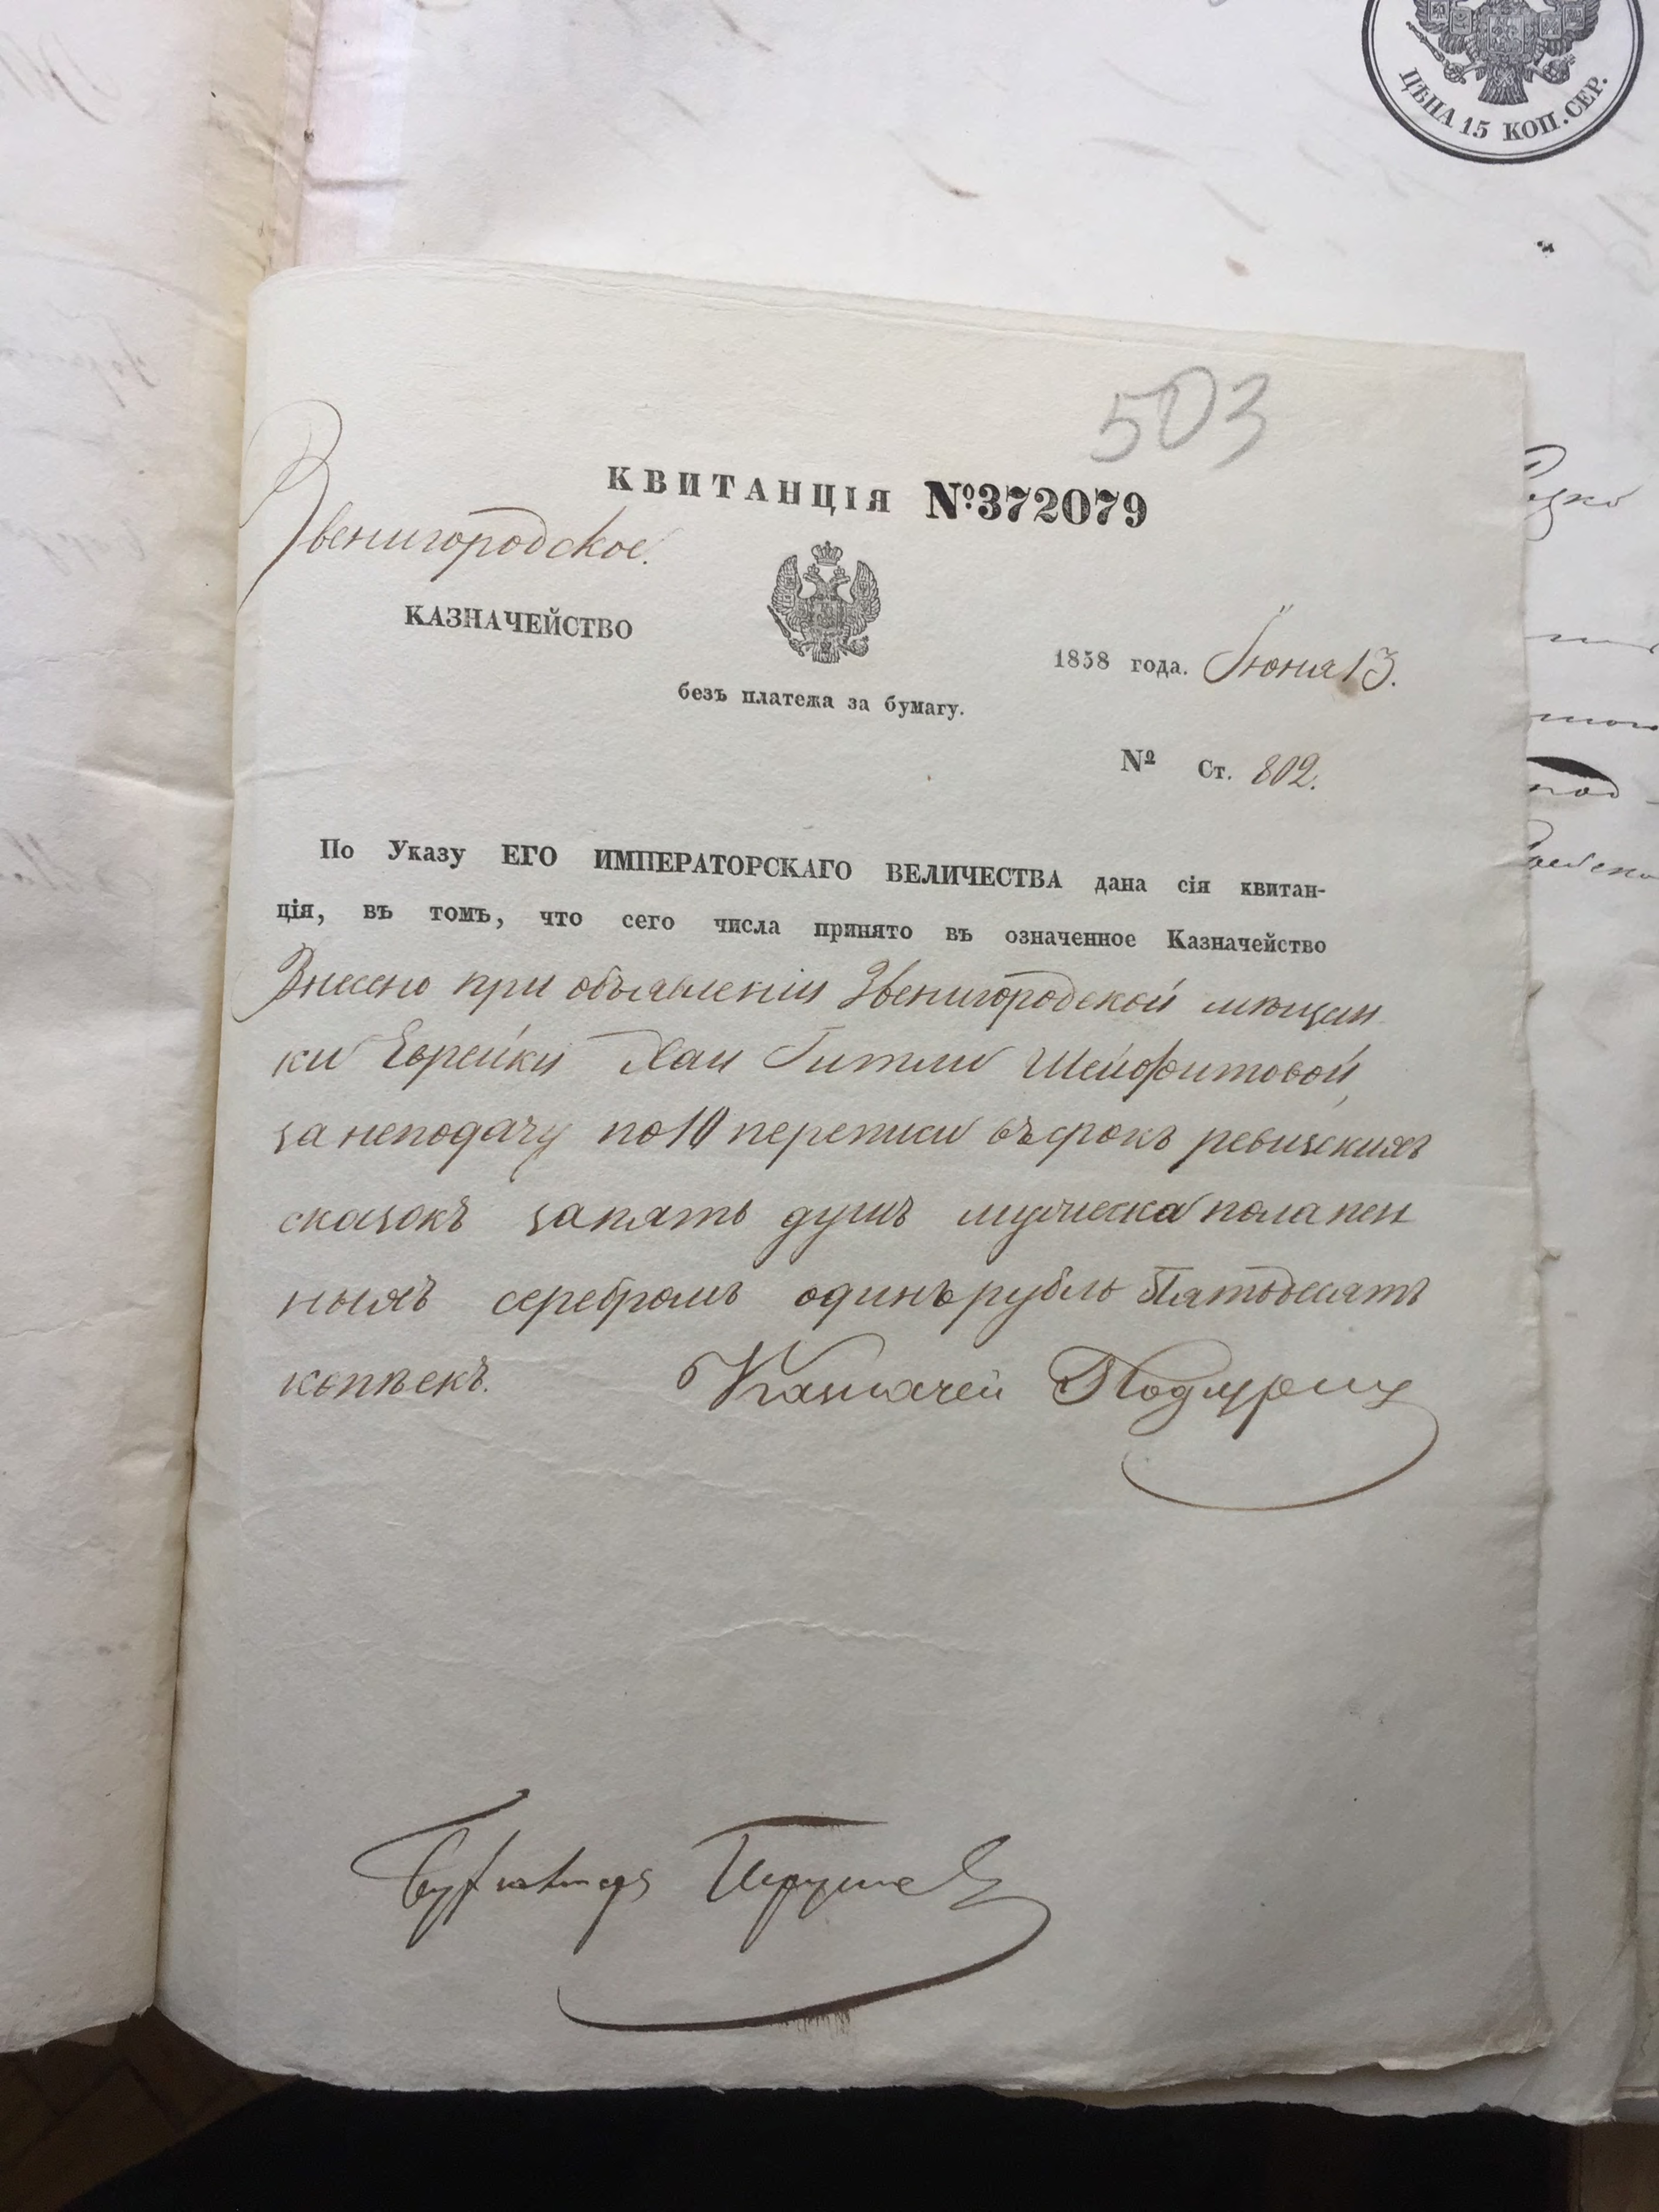 ЦѢНА 15 КОП. СЕР.
503
КВИТАНЦІЯ №372079
Звенигородское.
КАЗНАЧЕЙСТВО
1858 года. Іюня 13.
безъ платежа за бумагу.
№ Ст. 802.
По Указу ЕГО ИМПЕРАТОРСКАГО ВЕЛИЧЕСТВА дана сія квитан-
ція, въ томъ, что сего числа принято въ означенное Казначейство
Внесено при объявленіи Звенигородской мѣщан
ки Еврейки Хаи Гитли Шейфитовой,
за неподачу по 10 переписи въ срокъ ревизскихъ
сказокъ за пять душъ мужеска пола пен
ныхъ серебромъ одинъ рубль пятьдесятъ
копѣекъ. Казначей
Бухгалтеръ